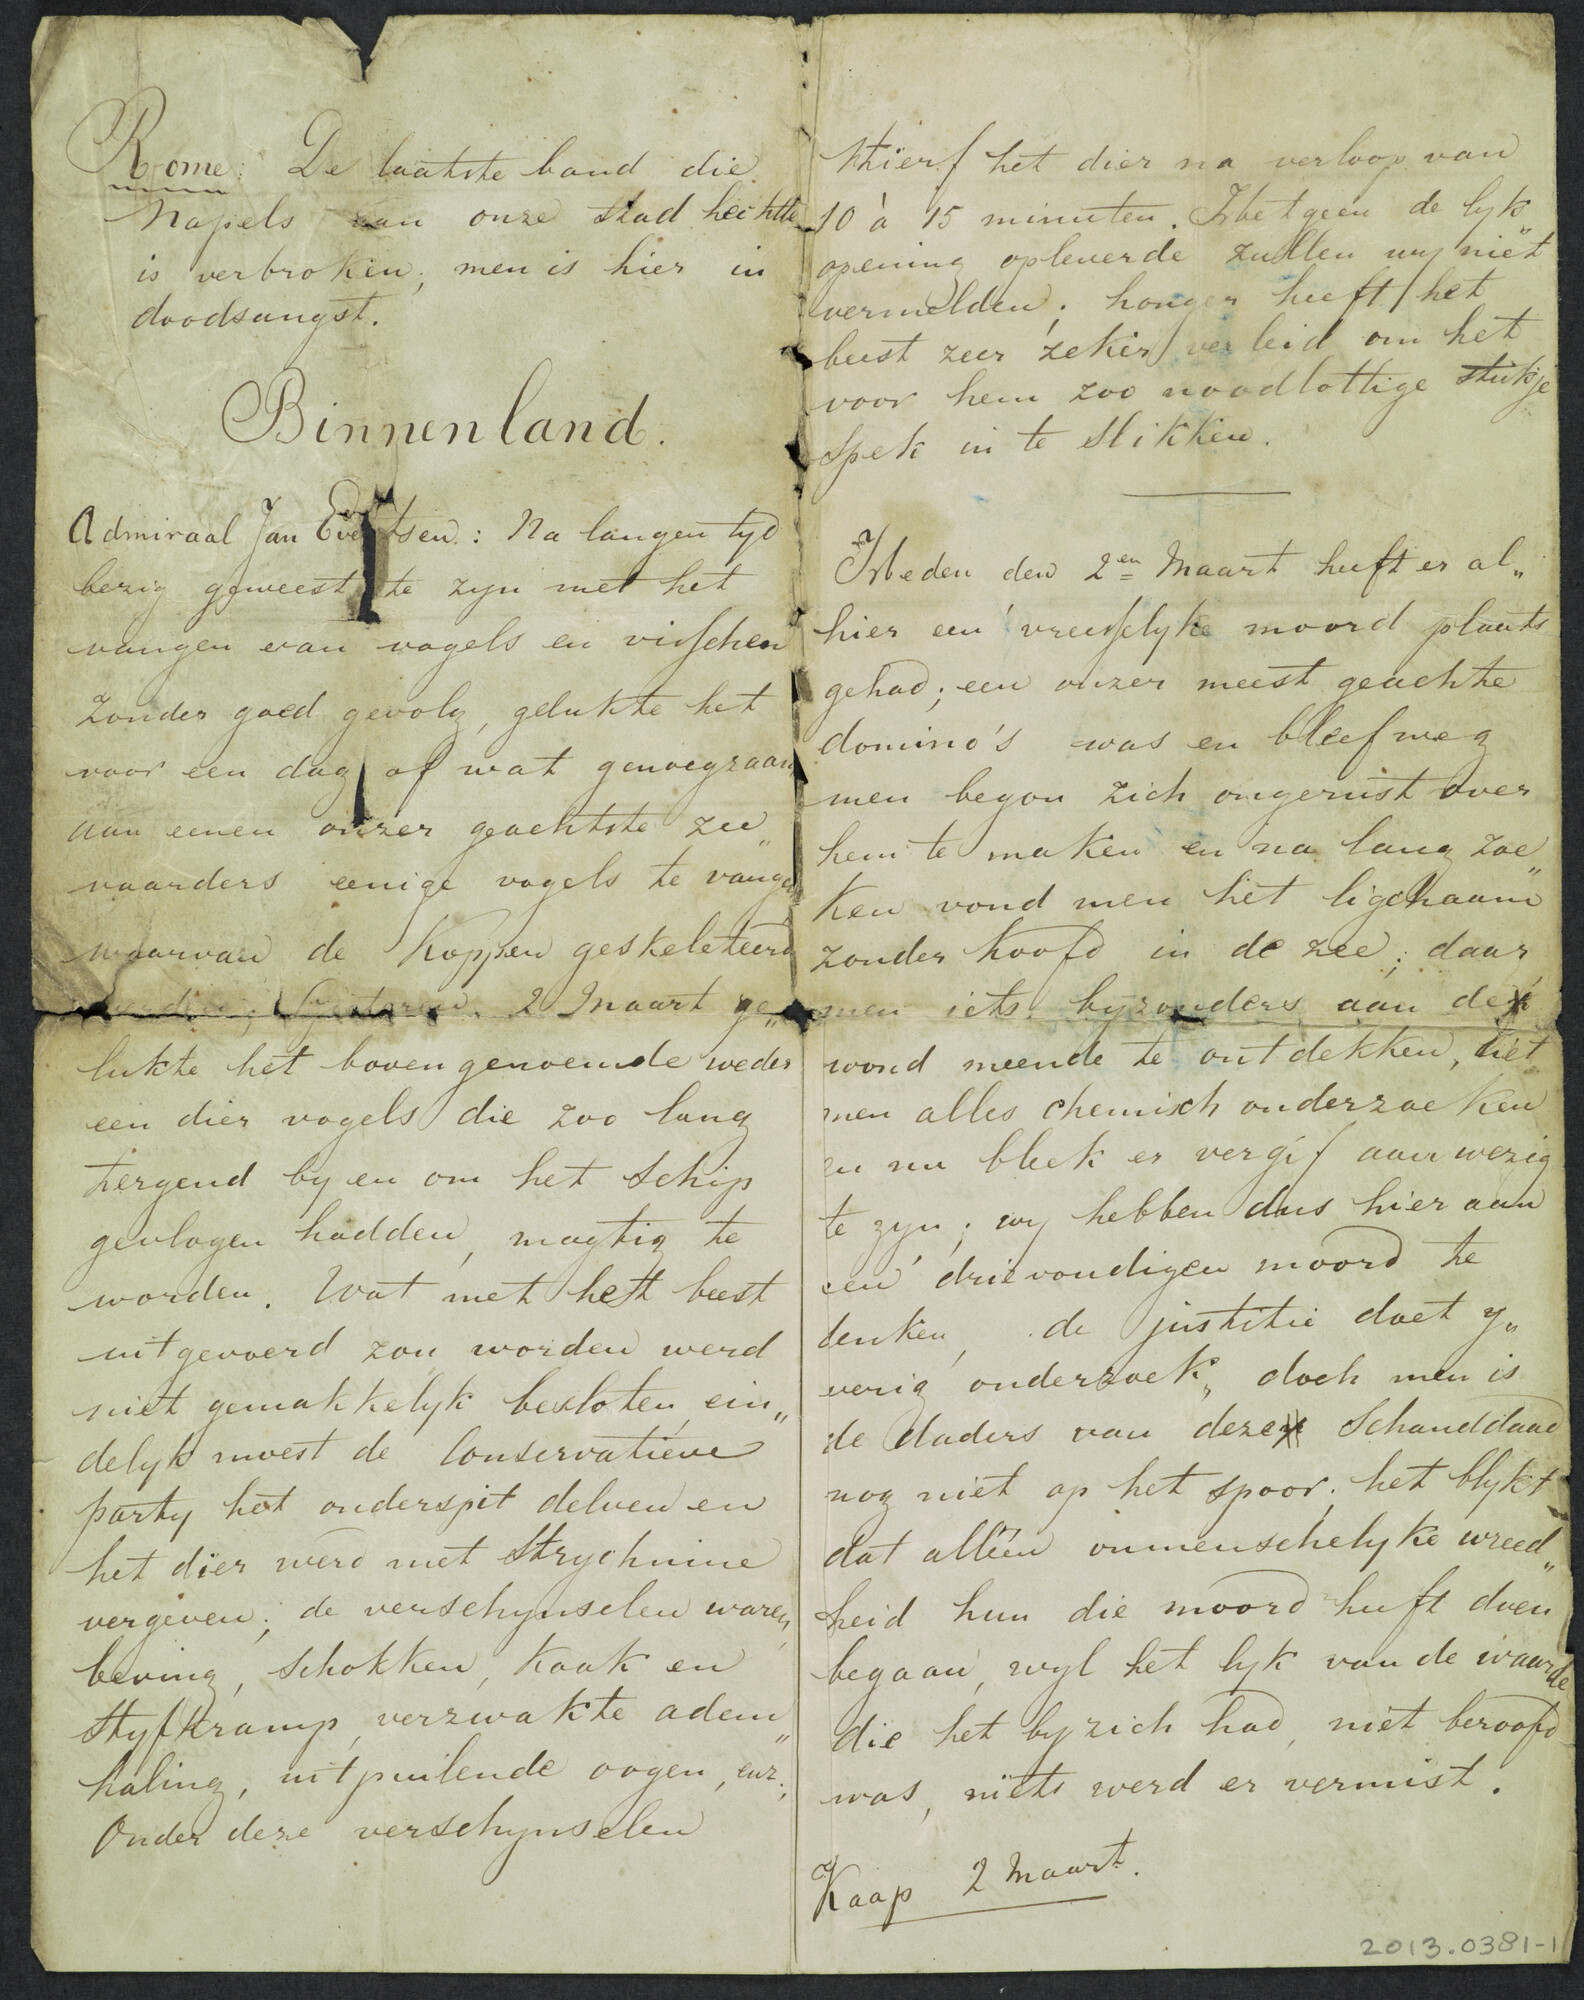 Rome: De laatste band die
Napels aan onze stad hechtte
is verbroken; men is hier in
doodsangst.
Binnenland.
Admiraal Jan Evertsen: Na langen tyd
bezig geweest te zyn met het
vangen van vogels en visschen
zonder goed gevolg, gelukte het
voor een dag of wat genoegzaam
aan eenen onzer geachtste zee„
vaarders eenige vogels te vangen
waarvan de koppen geskeleteerd
werden; Gisteren 2 Maart ge„
lukte het bovengenoemde weder
een dier vogels die zoo lang
tergend by en om het schip
gevlogen hadden, magtig te
worden. Wat met het beest
uitgevoerd zou worden werd
niet gemakkelyk besloten, ein„
delyk moest de Conservatieve
party het onderspit delven en
het dier werd met Strychnine
vergeven; de verschynselen waren
beving, schokken, kaak en
styfkramp, verzwakte adem„
haling, uitpuilende oogen, enz.
Onder deze verschynselen
stierf het dier na verloop van
10 à 15 minuten. Hetgeen de lyk„
opening opleverde zullen wy niet
vermelden; honger heeft het
beest zeer zeker verleid om het
voor hem zoo noodlottige stukje
spek in te slikken.
Heden den 2en Maart heeft er al„
hier een vreesselyke moord plaats
gehad; een onzer meest geachte
domino's was en bleef weg
men begon zich ongerust over
hem te maken en na lang zoe„
ken vond men het ligchaam
zonder hoofd in de zee; daar
men iets byzonders aan de
wond meende te ontdekken, liet
men alles chemisch onderzoeken
en nu bleek er vergif aanwezig
te zyn; wy hebben dus hier aan
een drievoudigen moord te
denken, de justitie doet y„
verig onderzoek, doch men is
de daders van deze schanddaad
nog niet op het spoor; het blykt
dat alléén onmenschelyke wreed„
heid hun die moord heeft doen
begaan, wyl het lyk van de waarde
die het by zich had, niet beroofd
was, niets werd er vermist.
Kaap 2 Maart.
2013.0381-1